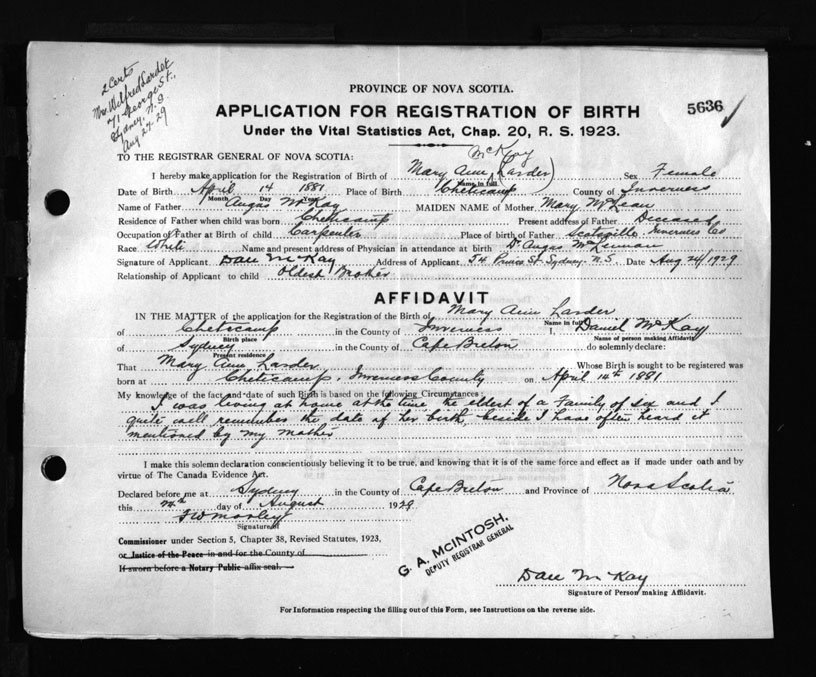 2 Certs
Mrs. Wilfred Larder
71 George St.,
Sydney, N.S.
Aug 27-29
PROVINCE OF NOVA SCOTIA.
APPLICATION FOR REGISTRATION OF BIRTH
5636
Under the Vital Statistics Act, Chap. 20, R. S. 1923.
TO THE REGISTRAR GENERAL OF NOVA SCOTIA:
McKay
I hereby make application for the Registration of Birth of Mary Ann (Larder) Sex Female
Name in full
Date of Birth April 14 1881 Place of Birth Cheticamp County of Inverness
Month Day
Name of Father Angus McKay MAIDEN NAME of Mother Mary McLean
Residence of Father when child was born Cheticamp Present address of Father Deceased
Occupation of Father at Birth of child Carpenter Place of birth of Father Scotsville Inverness Co
Race White Name and present address of Physician in attendance at birth Dr Angus McLennan
Signature of Applicant Dan McKay Address of Applicant 54 Prince St. Sydney N.S. Date Aug 24/1929
Relationship of Applicant to child Oldest Brother
AFFIDAVIT
IN THE MATTER of the application for the Registration of the Birth of Mary Ann Larder
Name in full
of Cheticamp in the County of Inverness I, Daniel McKay
Birth place Name of person making Affidavit
of Sydney in the County of Cape Breton do solemnly declare:
Present residence
That Mary Ann Larder Whose Birth is sought to be registered was
born at Cheticamp, Inverness County on April 14th 1881
My knowledge of the fact and date of such Birth is based on the following Circumstances:
I was living at home at the time, the eldest of a Family of six and I
quite well remember the date of her birth, beside I have often heard it
mentioned by my mother
I make this solemn declaration conscientiously believing it to be true, and knowing that it is of the same force and effect as if made under oath and by
virtue of The Canada Evidence Act.
Declared before me at Sydney in the County of Cape Breton and Province of Nova Scotia
this day of August 1929
Signature of
Commissioner under Section 5, Chapter 38, Revised Statutes, 1923,
or Justice of the Peace in and for the County of
If sworn before a Notary Public affix seal.
G. A. McINTOSH,
DEPUTY REGISTRAR GENERAL
Dan McKay
Signature of Person making Affidavit.
For Information respecting the filling out of this Form, see Instructions on the reverse side.